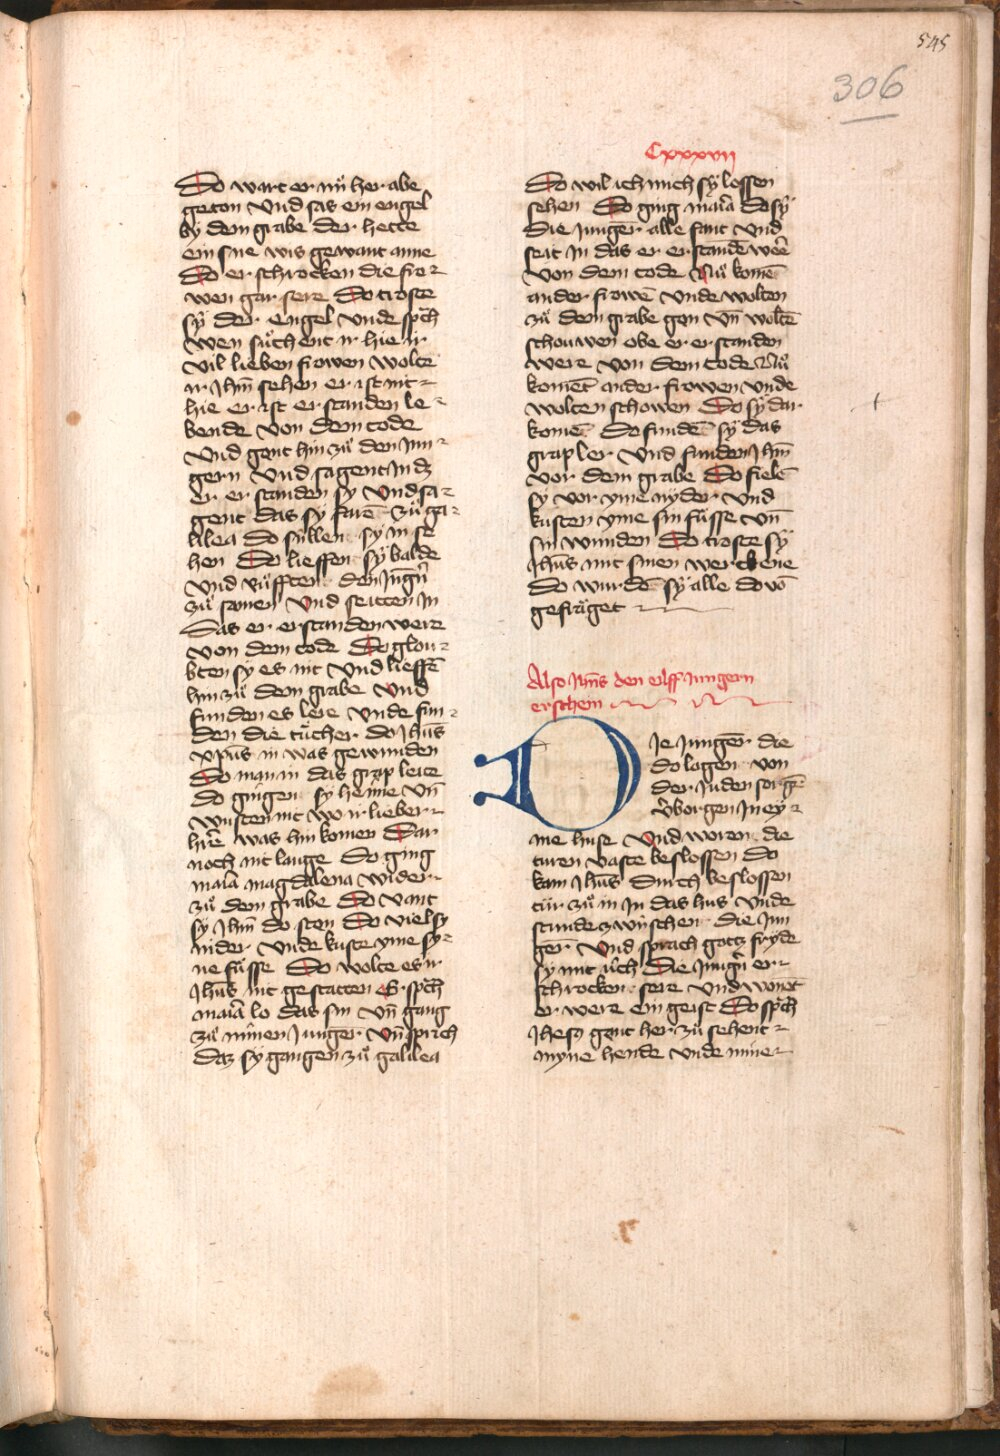 545
306
Cxxxvii
Do wart er nu̇ her abe
geton vnd sas ein engel
by dem grabe der hette
ein sne wis gewant anne
Do er schrocken die fro
wen gar sere Do troste
sÿ der engel vnde sp̄ch
wen su̇chent ir hie ir
vil lieben frowen wolte
ir Jhm̄ sehen er ist nit
hie er ist er standen le
bende von dem tode
Vnd gent hin zu̇ den Jun
gern vnd sagent In dz
er er standen sy vnd sa
gent das sy farē zu̇ ga
lilea do su̇llen sy in se
hen Do lieffen sÿ balde
vnd ru̇fften den Jūgn̄
zu̇ samen vnd seitten In
Das er erstanden were
von dem tode Do glou
bten sy es nit vnd lieffē
hin zu̇ dem grabe vnd
funden es lere vnde fun
den die tu̇cher do Jhūs
xp̄us in was gewunden
Do man in das grap leite
do gingen sy heime vn̄
wusten nit wo ir lieber
hr̄e was hin komen Dar
noch nit lange Do ging
maīa magdalena wider
zu̇ dem grabe Do vant
sy Jhm̄ do sten Do viel sy
nider vnde kuste yme sy
ne fu̇sse Do wolte es ir
Jhūs nit gestatten E sp̄ch
maīa lo das sin vn̄ gang
zu̇ minen Junger vn̄ sprich
daz sy gangen zu̇ galilea
Do wil ich mich sÿ lossen
sehen Do ging maīa do sÿ
die Junger alle fant vnd
seit In das er er standē wēe
von dem tode Nu̇ komē
ander frowē vnde wolten
zu̇ dem grabe gon vn̄ woltē
schouwen obe er er standen
were von dem tode Nu̇
koment ander frowen vnde
wolten schowen Do sÿ dar
komē Do fundē sÿ das
grap ler vnd funden Jhm̄
vor dem grabe Do fielē
sy vor yme nyder vnd
kusten yme sin fu̇sse vn̄
sin wunden Do troste sÿ
Jhūs mit sinen
Do wurdē sÿ alle do vō
gefröget
Also Jhūs den eilff Jungern
erschein
DJe Junger die
do logen von
der Juden sorgē
v̄borgen In ey
nie huse vnd woren die
turen vaste beslossen do
kam Jhūs durch beslossen
tür zu̇ in In das hus vnde
stunde zwu̇schen die Jun
ger vnd sprach gottz fryde
sy mit u̇ch Die Jungn̄ er
schrocken sere vnd wonēt
er were ein geist Do sp̄ch
Jhesꝯ gont her zu̇ sehent
myne hende vnde mine